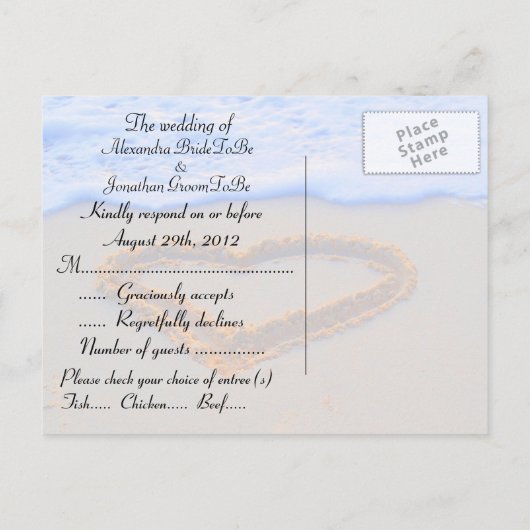 The wedding of
Alexandra BrideToBe
&
Jonathan GroomToBe
Kindly respond on or before
August 29th, 2012
M................................................
...... Graciously accepts
...... Regretfully declines
Number of guests ................
Please check your choice of entree(s)
Fish..... Chicken..... Beef.....
Place
Stamp
Here